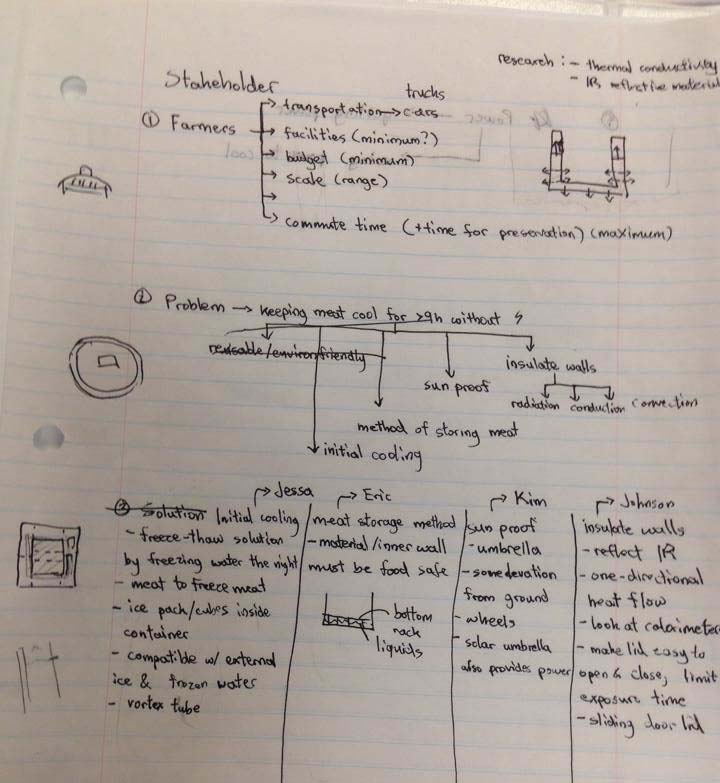 research : - thermal conductivity
- IR reflective material
Stakeholder
trucks
① Farmers
transportation → cars
facilities (minimum?)
budget (minimum)
scale (range)
commute time (+time for preservation) (maximum)
② Problem → keeping meat cool for >9h without
reusable/environ friendly
insulate walls
sun proof
radiation conduction convection
method of storing meat
initial cooling
Jessa
③ Solution Initial cooling
- freeze-thaw solution
by freezing water the night
- meat to freeze meat
- ice pack/cubes inside
container
- compatible w/ external
ice & frozen water
- vortex tube
Eric
meat storage method
- material/inner wall
must be food safe
bottom
rack
liquids
Kim
sun proof
- umbrella
- some devation
from ground
- wheels
- solar umbrella
also provides power
Johnson
insulate walls
- reflect IR
- one-directional
heat flow
- look at calorimeter
- make lid easy to
open & close, limit
exposure time
- sliding door lid